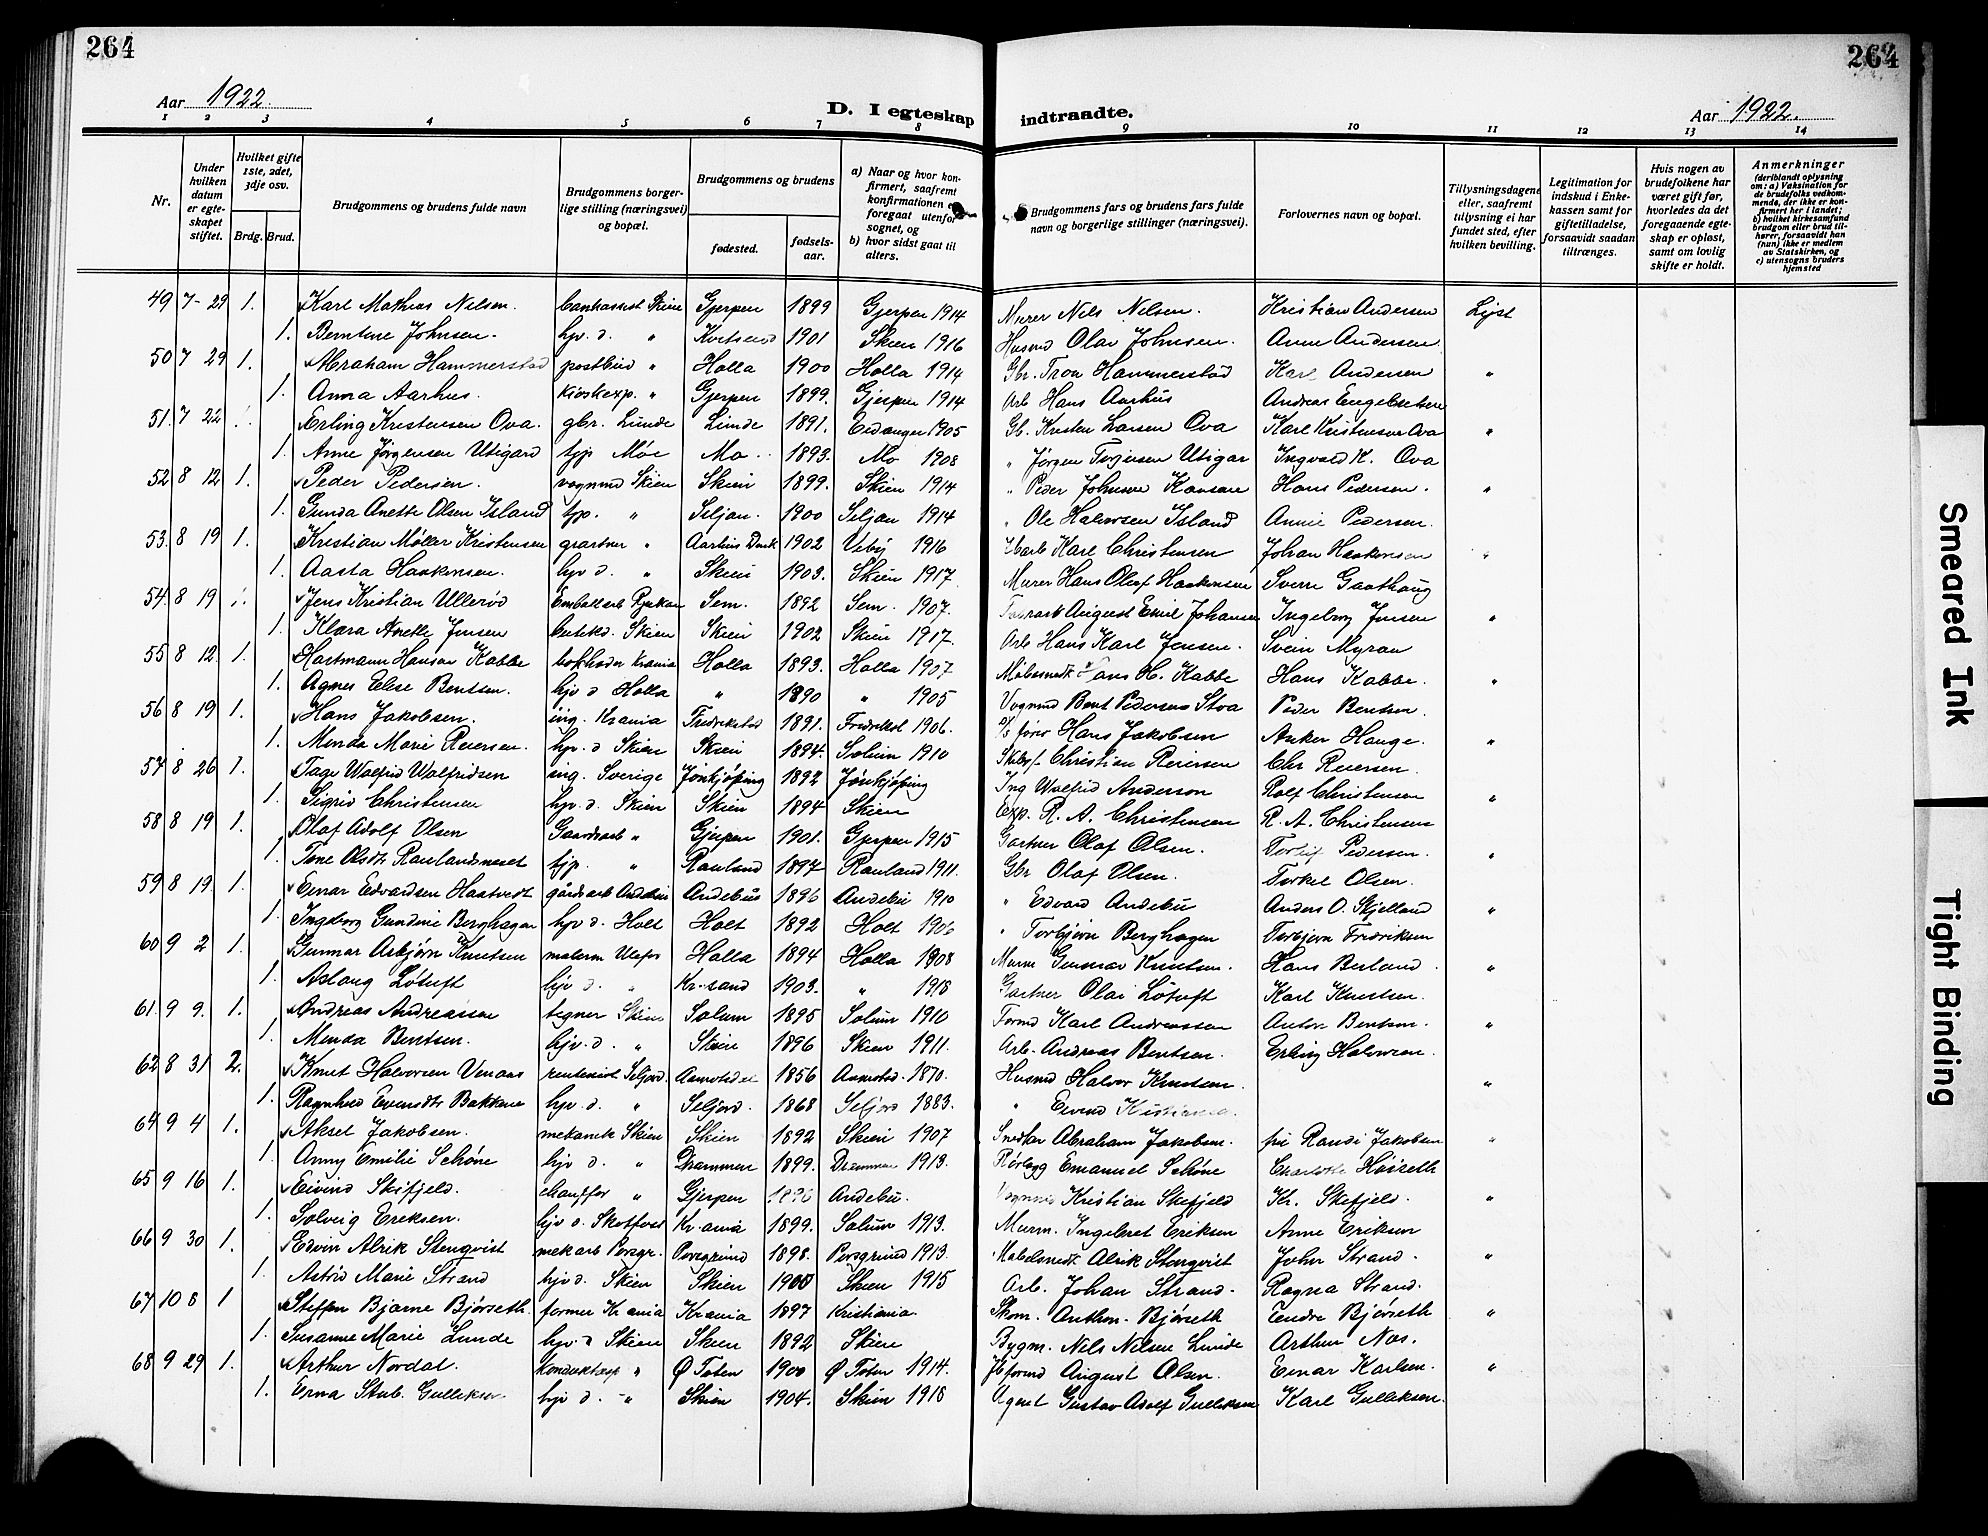 264
264
Aar 1922.
D. I egteskap indtraadte.
Aar 1922.
1 2 3 4 5 6 7 8 9 10 11 12 13 14
Nr.
Under hvilken datum er egteskapet stiftet.
Hvilket gifte 1ste, 2det, 3dje osv.
Brdg. Brud.
Brudgommens og brudens fulde navn
Brudgommens borgerlige stilling (næringsvei) og bopæl.
Brudgommens og brudens
fødested. fødselsaar.
a) Naar og hvor konfirmert, saafremt konfirmationen er foregaat utenfor sognet, og
b) hvor sidst gaat til alters.
Brudgommens fars og brudens fars fulde navn og borgerlige stillinger (næringsvei).
Forlovernes navn og bopæl.
Tillysningsdagene eller, saafremt tillysning ei har fundet sted, efter hvilken bevilling.
Legitimation for indskud i Enkekassen samt for giftetilladelse, forsaavidt saadan tiltrænges.
Hvis nogen av brudefolkene har været gift før, hvorledes da det foregaaende egteskap er opløst, samt om lovlig skifte er holdt.
Anmerkninger (deriblandt oplysning om: a) Vaksination for de brudefolks vedkommende, der ikke er konfirmert her i landet; b) hvilket kirkesamfund brudgom eller brud tilhører, forsaavidt han (hun) ikke er medlem av Statskirken, og c) utensogns bruders hjemsted
49 7-29 1. Karl Mathias Nilsen. Skien Gjerpen 1899 Gjerpen 1914 Murer Nils Nilsen. Kristian Andersen Lyst
1. Berntine Johnsen. hjv. d. " 1901 Skien 1916 Husmd Olav Johnsen. Anne Andersen
50 7 29 1. Abraham Hammerstad postbud " Holla 1900 Holla 1914 Gbr. Tron Hammerstad Karl Andersen "
1. Anna Aarhus. kioskexp. " Gjerpen 1899. Gjerpen 1914 Arb Hans Aarhus Andreas Engebretsen
51. 7 22 1. Erling Kristensen Ova. gbr. Lunde Lunde 1891. Eidanger 1905 Gb. Kristen Larsen Ova Karl Kristensen Ova "
1. Anne Jörgensen Utigard tjp Moe Mo. 1893. Mo 1908 " Jörgen Torjusen Utigar Ingvald K. Ova
52 8 12 1. Peder Pedersen. vognmd Skien Skien 1899. Skien 1914 " Peder Johnsen Hans Pedersen. "
1. Gunda Anette Olsen Island tjp. " Siljan. 1900 Siljan 1914 " Ole Halvorsen Island Annie Pedersen.
53. 8 19 1. Kristian Møller Kristensen gartner " Aarhus Dmk 1902 Veby 1916 Karl Christensen Johan Haakensen "
1. Aasta Haakensen. hjv d. " Skien 1903. Skien 1917. Murer Hans Olaf Haakensen Sverre Gaathaug
54. 8 19 1. Jens Kristian Ullerød Rjukan Sem. 1892 Sem. 1907. August Emil Johansen Ingeborg Jensen "
1. Klara Anette Jensen butikd. Skien Skien 1902 Skien 1917. Arb Hans Karl Jensen. Svein Myran
55 8 12. 1. Hartmann Hansen Kabbe bokholder Krania Holla 1893. Holla 1907 Møbelsnedk Hans H. Kabbe Hans Kabbe. "
1. Agnes Elise Bentsen. hjv d Holla " 1890 " 1905 Vognmd Bent Pedersen Stoa Peder Bentsen.
56 8 19 1. Hans Jakobsen. ing. Krania Fredrikstad 1891. Fredrikst 1906. Hans Jakobsen Anker Hauge. "
1. Menda Marie Reiersen. hjv. d Skien Skien 1894. Solum 1910 Christian Reiersen Chr Reiersen.
57 8 26 1. Tage Walfrid Walfridsen ing. Sverige Jönkjöping 1892 Jönkjöping Ing Walfrid Anderson Rolf Christensen "
1. Sigrid Christensen hjv. d. Skien Skien 1894 Skien Exp. R. A. Christensen R. A. Christensen
58 8 19 1. Olaf Adolf Olsen Gaardsarb " Gjerpen 1901. Gjerpen 1915 Gartner Olaf Olsen. Torleif Pedersen. "
1. Tone Olsdtr Raulandsneset tjp. " Rauland 1897 Rauland 1911. Gbr Olaf Olsen. Torkel Olsen.
59 8 19. 1. Einar Edvardsen Haatvedt gårdsarb Andebu Andebu 1896 Andebu 1910 " Edvard Andebu Anders O. Skjelland "
1. Ingeborg Gundine Berghagen hjv d. Holt Holt 1892 Holt 1906 " Torbjørn Berghagen Torbjørn Fredriksen
60 9 2 1. Gunnar Asbjørn Knutsen malerm Ulefos Holla 1894 Holla 1908 Murm Gunnar Knutsen. Hans Berland. "
1. Aslaug Løtuft hjv d. " Kr.sand 1903. " 1918 Gartner Olai Løtuft Karl Knutsen.
61. 9 9. 1. Andreas Andreassen tegner Skien Solum 1895 Solum 1910 Formd Karl Andreassen Anton Bentsen. "
1. Menda Bentsen. hjv. d. " Skien 1896 Skien 1911. Arb. Andreas Bentsen. Erling Halvorsen.
62 8 31 2. Knut Halvorsen Venaas rentenist Seljord Aamotsdal 1856 Aamotsd. 1870. Husmd Halvor Knutsen. "
1. Ragnhild Evensdtr Bakkene hjv. d. " Seljord. 1868 Seljord 1883. "
64 9 4 1. Aksel Jakobsen. mekanik Skien Skien 1892 Skien 1907 Snedker Abraham Jakobsen. fru Randi Jakobsen "
1. Anny Emilie Schøne hjv d. " Drammen 1899. Drammen 1913. Rørlegg Emanuel Schøne Charlotte Höiseth
65 9 16 1. Eivind Skifjeld. chauffør " Gjerpen Andebu. Kristian Skifjeld Kr. Skifjeld. "
1. Solveig Eriksen. hjv d. Skotfoss Kr.ania 1899. Solum 1913. Murm. Ingebret Eriksen Anne Eriksen
66 9 30 1. Edvin Alrik Stenqvist mek arb Porsgr. Porsgrund 1898. Porsgrund 1913. Møbelsnedk Alrik Stenqvist John Strand. "
1. Astrid Marie Strand hjv d. Skien Skien 1900 Skien 1915 Arb. Johan Strand. Ragna Strand.
67 10 8 1 Steffen Bjarne Bjørseth. former Kr.ania Kr.ania 1897 Kristiania Skom. Anthon. Bjørseth Tendre Bjørseth "
1. Susanne Marie Lunde hjv. d Skien Skien 1892 Skien Bygm. Nils Nilsen Lunde Arthur Nas.
68 9 29 1. Arthur Nordal. " Ø Toten 1900 Ø Toten 1914. August Olsen. Einar Karlsen. "
1. Erna Stub. Gulliksen. hjv d. " Skien 1904. Skien 1918 Agent Gustav Adolf Gulliksen Karl Gulliksen.
Smeared Ink
Tight Binding